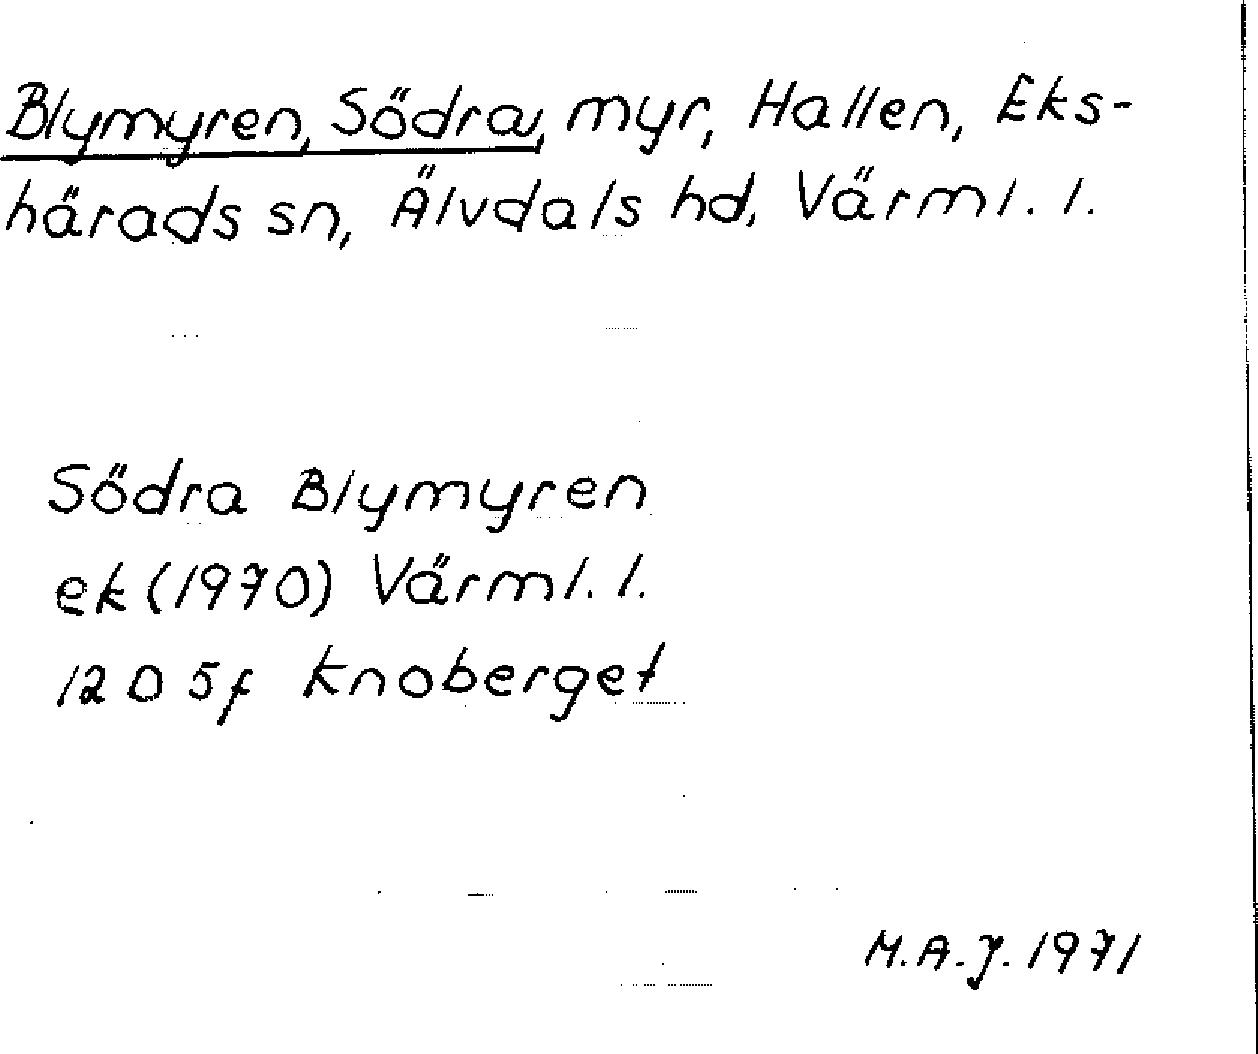 Blymyren, Södra, myr, Hallen, Eks-
härads sn, Älvdals hd, Värml. l.
Södra Blymyren
ek (1970) Värml. l.
12 D 5f Knoberget
M.A.J. 1971